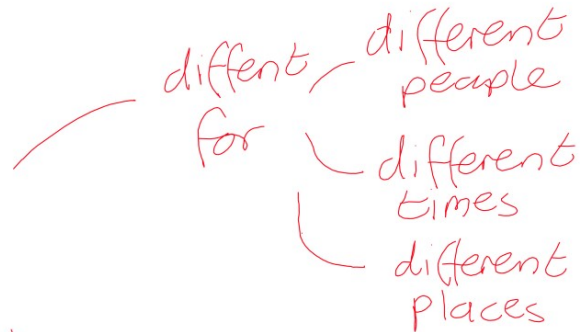 diffent
for
different
people
different
times
different
places